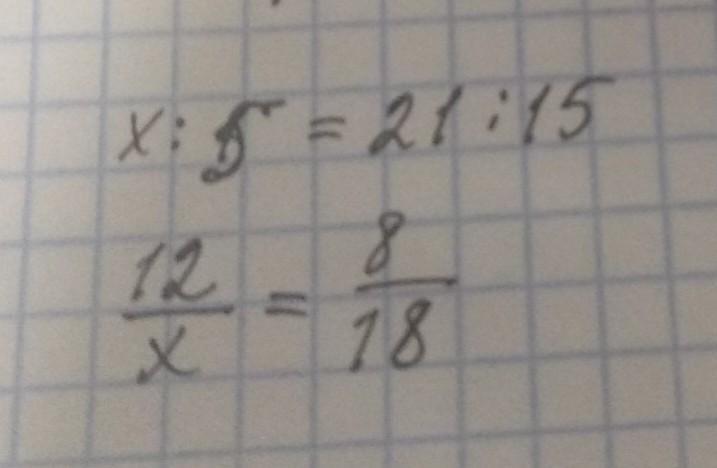 x : 5 = 21 : 15
12/x = 8/18